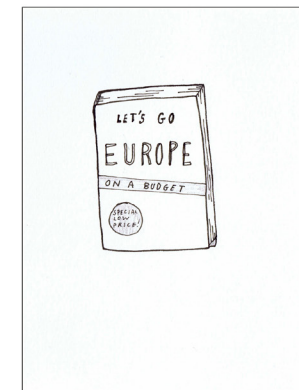 LET'S GO
EUROPE
ON A BUDGET
SPECIAL
LOW
PRICE!